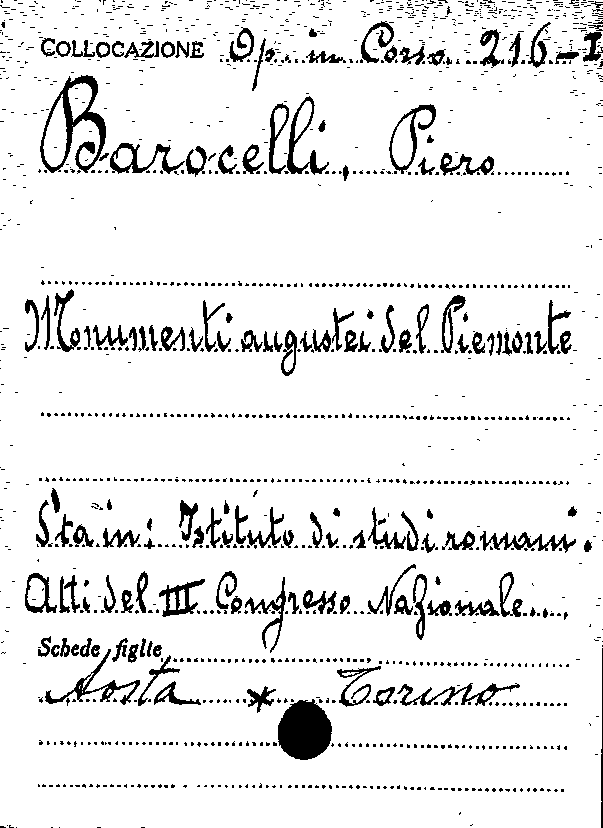 COLLOCAZIONE Op. in Corso 216-I
Barocelli, Piero
Monumenti augustei del Piemonte
Sta in: Istituto di studi romani.
Atti del III Congresso Nazionale....
Schede figlie
Aosta * Torino